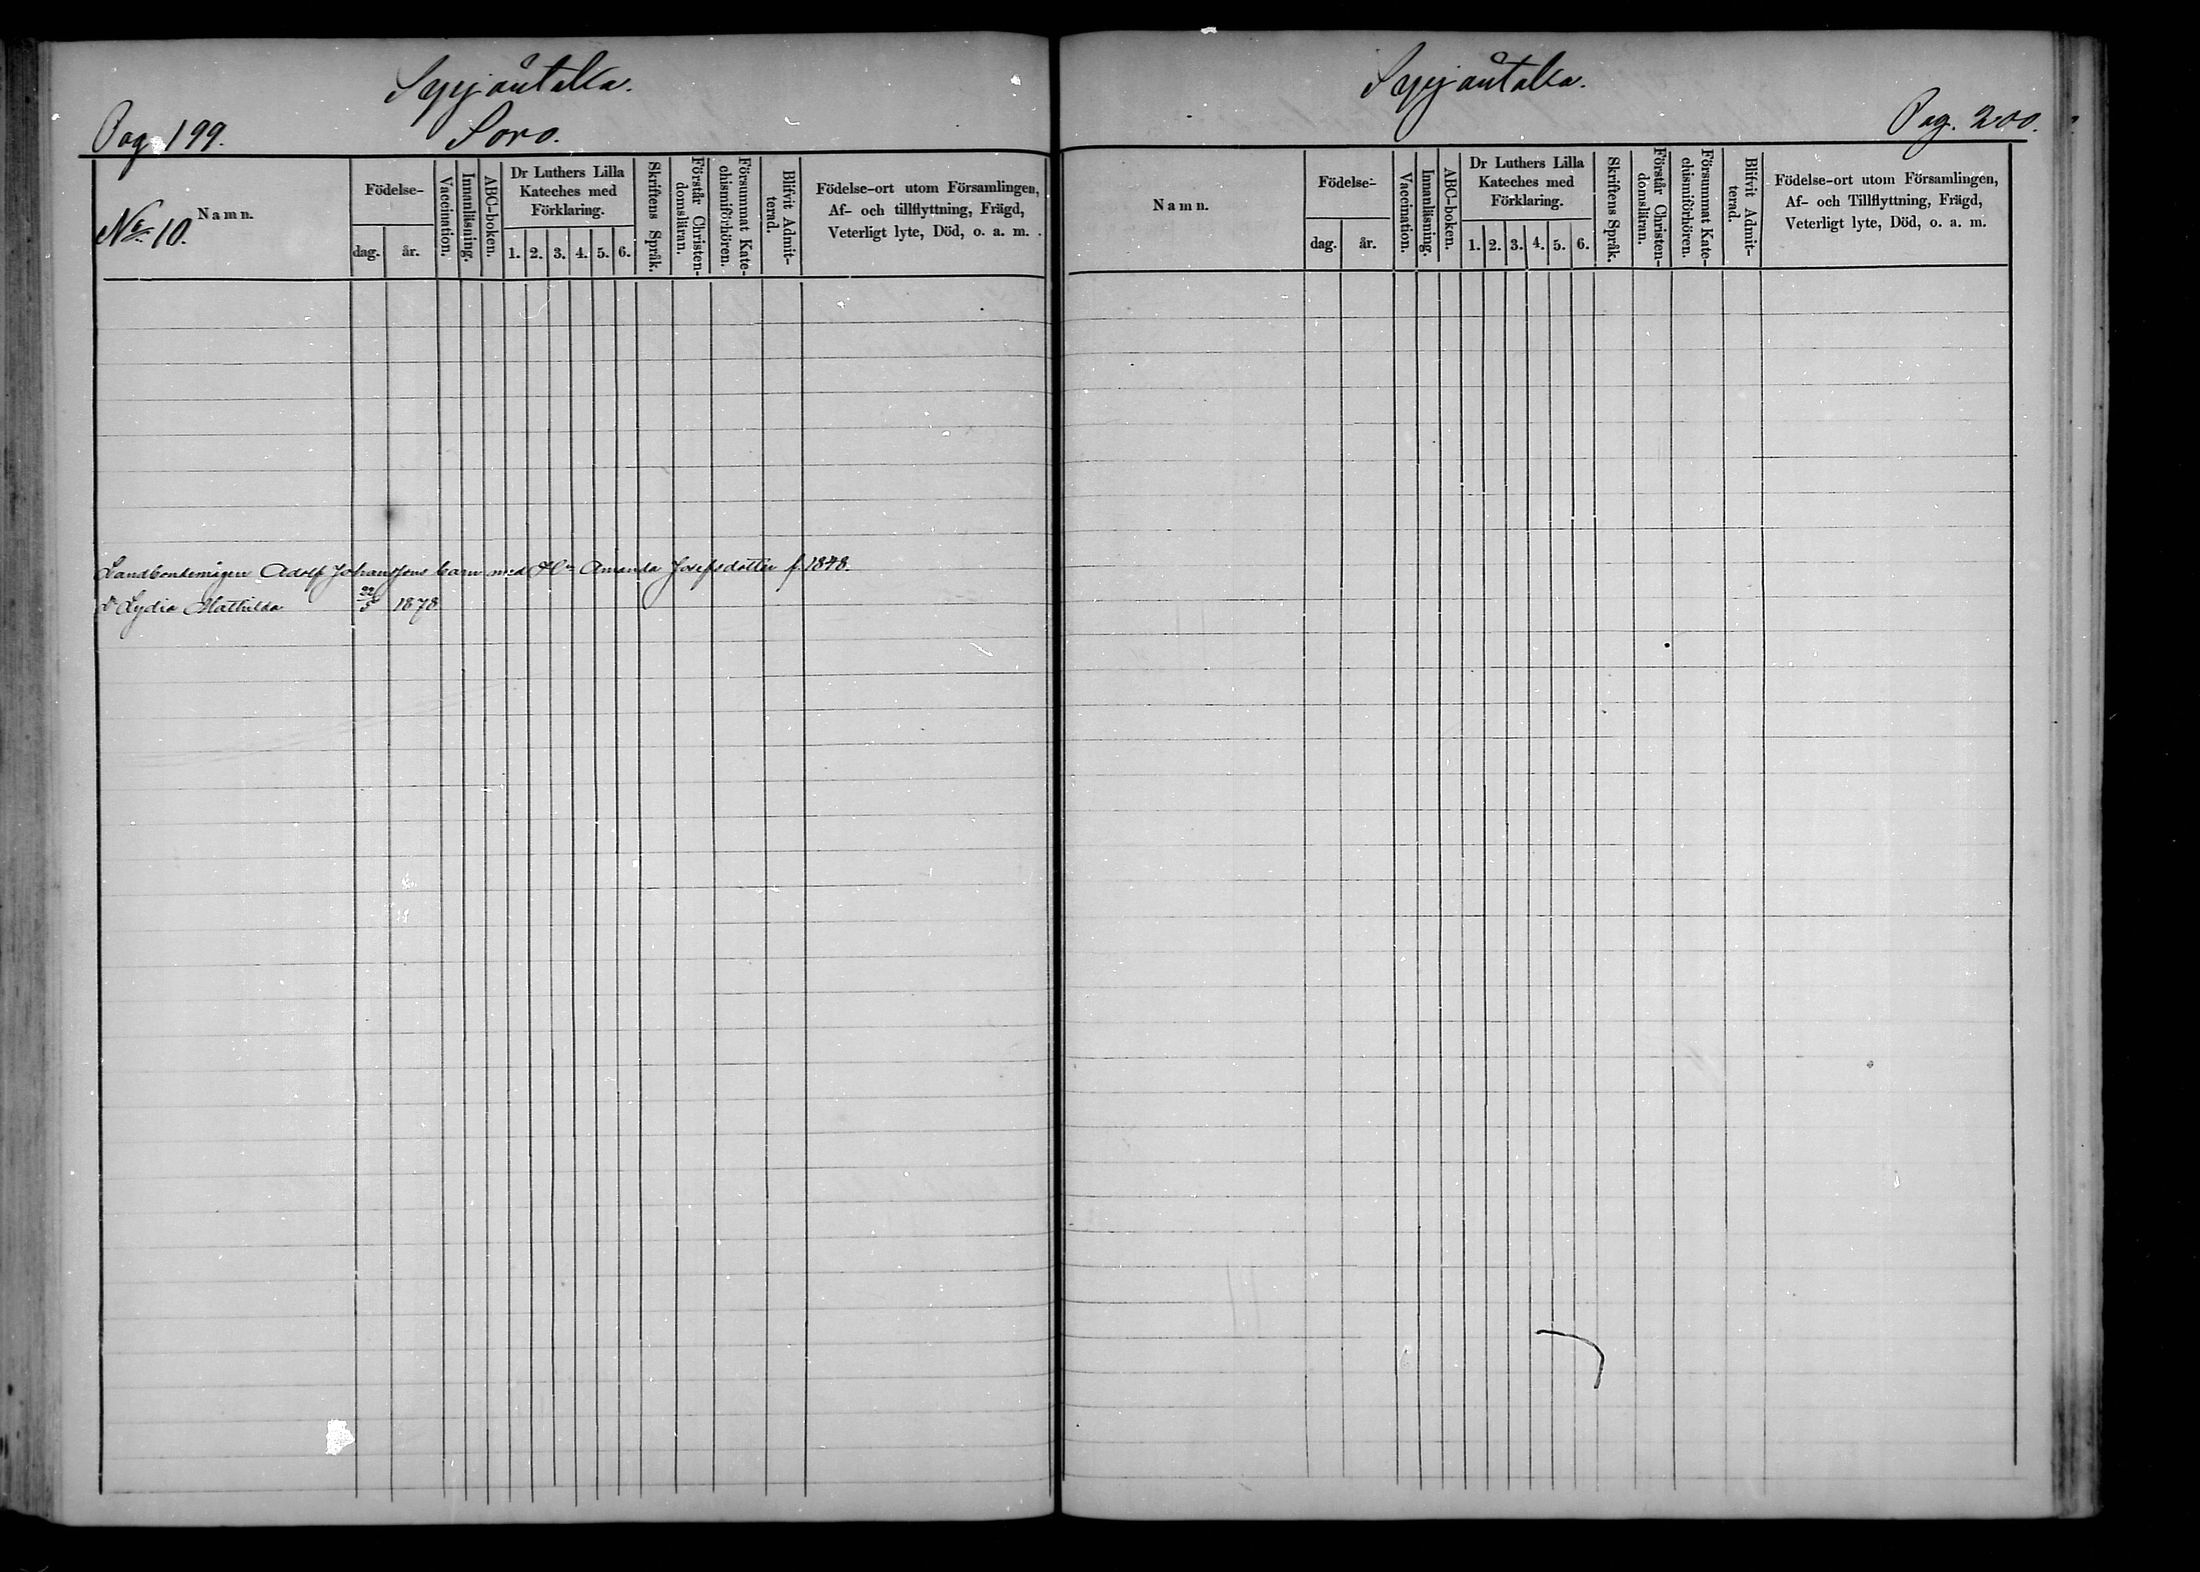 Syrjäntaka.
Pag. 199.
Soro.
Nº 10.
Namn.
Födelse-
dag.
år.
Vaccination.
Innanläsning.
ABC-boken.
Dr Luthers Lilla
Kateches med
Förklaring.
1. 2. 3. 4. 5. 6.
Skriftens Språk.
Förstår Christen-
domsläran.
Försummat Kate-
chismiförhören.
Blifvit Admit-
terad.
Födelse-ort utom Församlingen,
Af- och tillflyttning, Frägd,
Veterligt lyte, Död, o. a. m.
Landbondemågen Adolf Johanssons barn med Hn Amanda Josefsdotter f. 1848.
D Lydia Mathilda 22/5 1878
Syrjäntaka.
Pag. 200.
Namn.
Födelse-
dag.
år.
Vaccination.
Innanläsning.
ABC-boken.
Dr Luthers Lilla
Kateches med
Förklaring.
1. 2. 3. 4. 5. 6.
Skriftens Språk.
Förstår Christen-
domsläran.
Försummat Kate-
chismiförhören.
Blifvit Admit-
terad.
Födelse-ort utom Församlingen,
Af- och Tillflyttning, Frägd,
Veterligt lyte, Död, o. a. m.